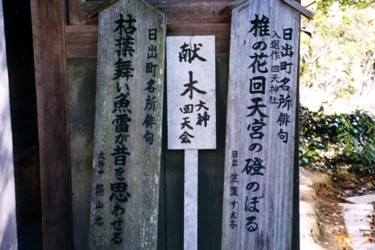 日出町名所俳句
入選作 回天神社
椎の花回天宮の磴のぼる
日出 笠置すえ子
献木
大神
回天会
日出町名所俳句
枯葉舞い魚雷が昔を思わせる